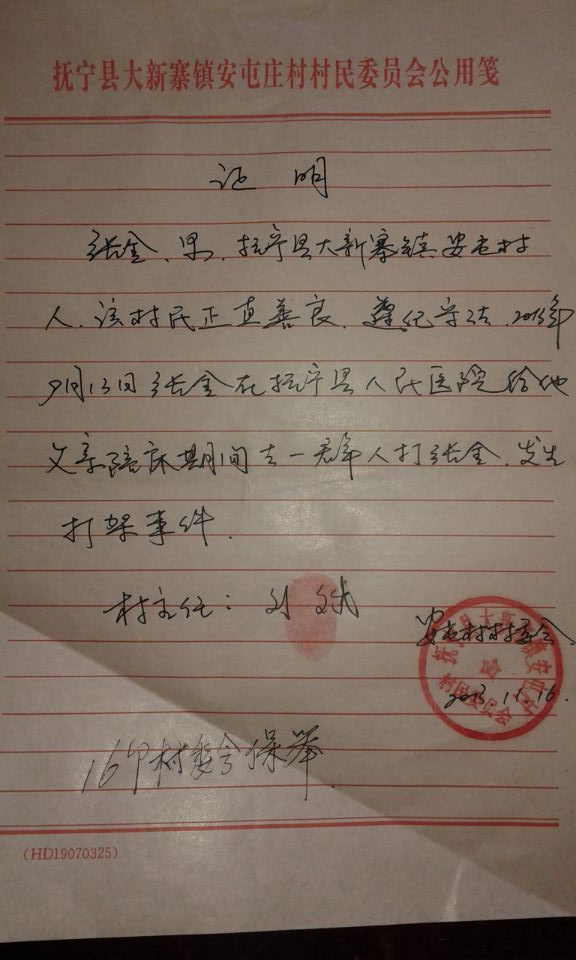 抚宁县大新寨镇安屯庄村村民委员会公用笺
证 明
张金、男、抚宁县大新寨镇安屯村
人、该村民正直善良、遵纪守法、2013年
9月13日张金在抚宁县人民医院给他
父亲陪床期间去一群人打张金、发生
打架事件.
村主任：刘
安屯村村委会
2013.11.16
抚宁县大新寨镇安屯庄
村民委员会
16 村委会保举
(HD19070325)